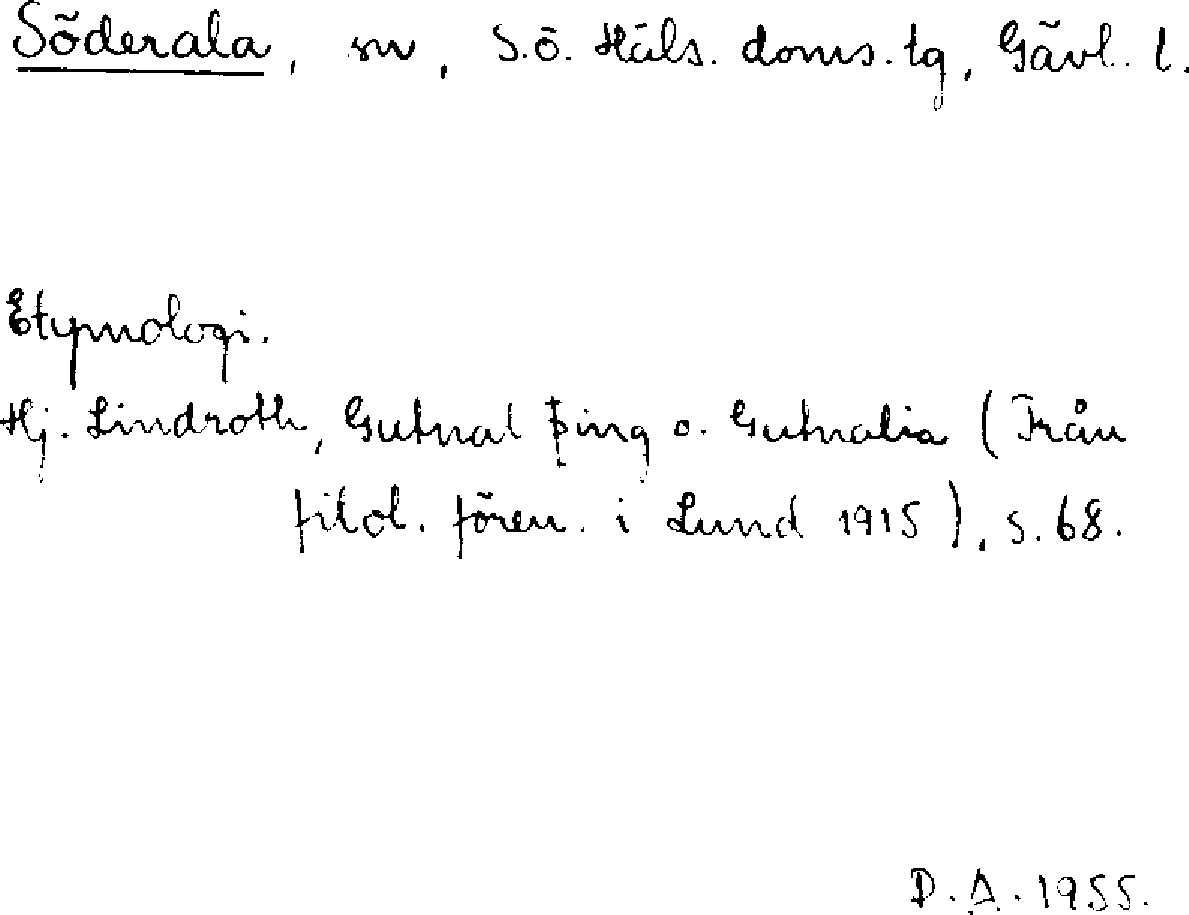 Söderala, sn, S.ö. Häls. doms. tg, Gävl. l.
Etymologi.
Hj. Lindroth, Gutnal þing o. Gutnalia (Från
filol. fören. i Lund 1915), s. 68.
D. A. 1955.